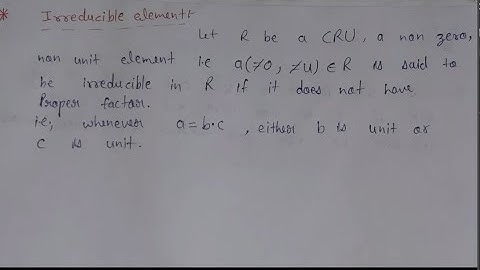 * Irreducible element:-
Let R be a CRU, a non zero,
non unit element i.e a(≠0, ≠u) ∈ R is said to
be irreducible in R if it does not have
Proper factor.
i.e, whenever a = b·c, either b is unit or
c is unit.